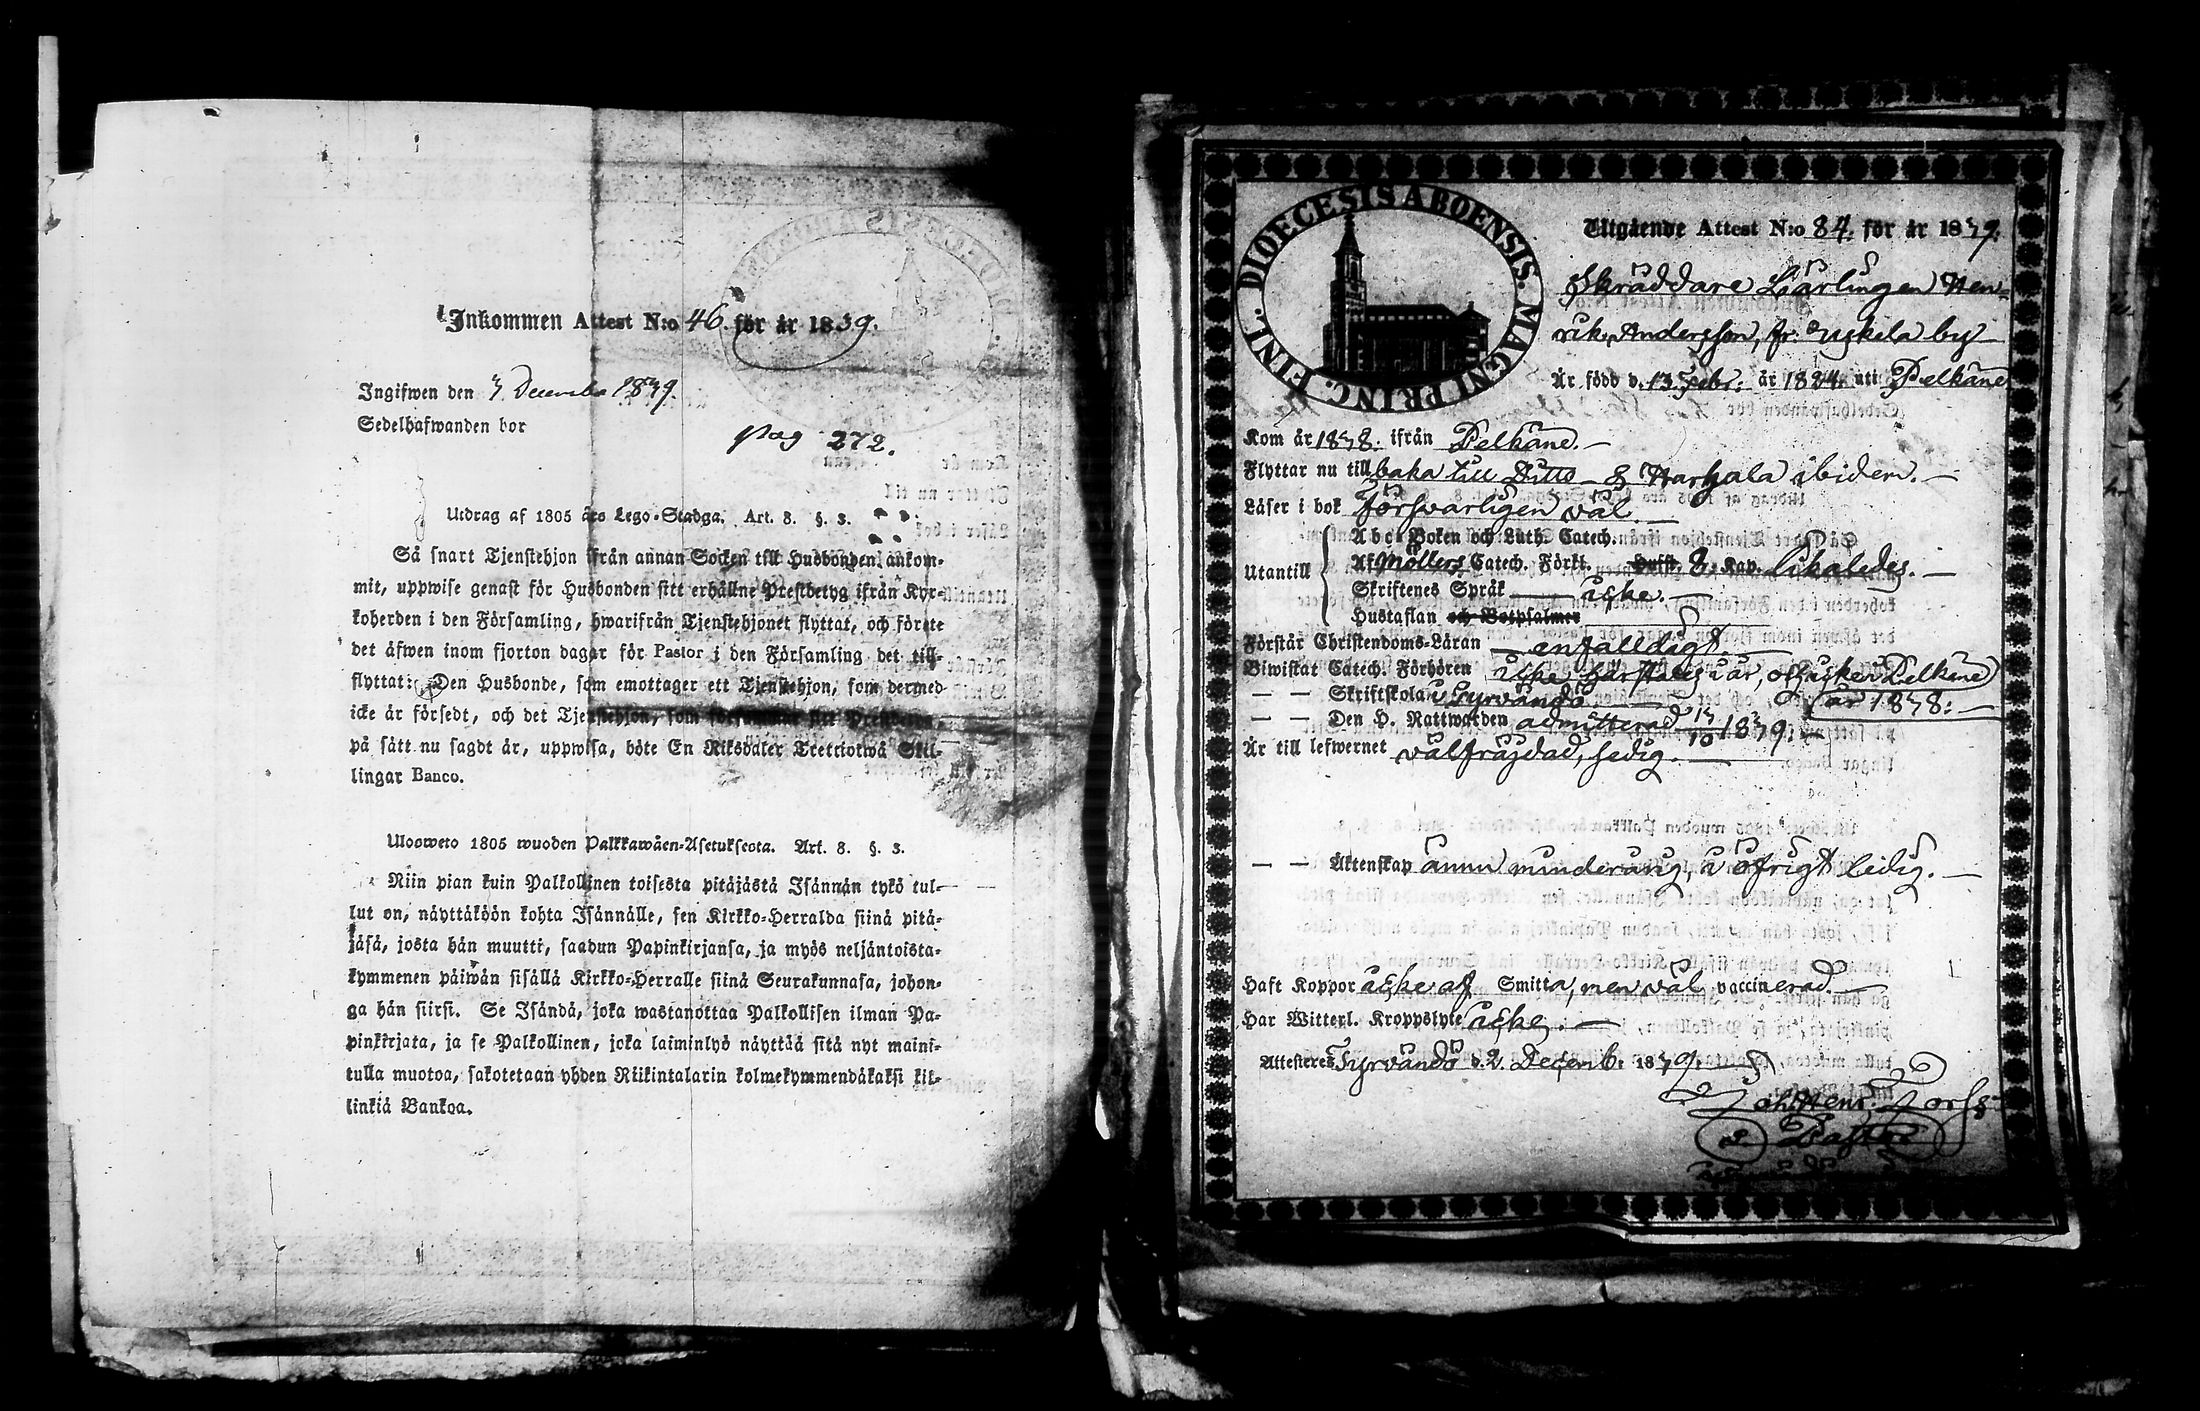 Inkommen Attest N:o 46. för år 1839.
Ingifwen den 3 December 1839.
Sedelhafwanden bor
Pag 272.
Utdrag af 1805 års Lego-Stadga. Art. 8. §. 3.
Så snart Tjenstehjon ifrån annan Socken till Husbonden ankom-
mit, uppwise genast för Husbonden sitt erhållne Prestbetyg ifrån Kyr-
koherden i den Församling, hwarifrån Tjenstehjonet flyttat, och förete
det äfwen inom fjorton dagar för Pastor i den Församling det till-
flyttat: Den Husbonde, som emottager ett Tjenstehjon, som dermed
icke är försedt, och det Tjenstehjon, som försummar sitt Prestbetyg,
på sätt nu sagdt är, uppwisa, böte En Riksdaler Tretriotwå Skil-
lingar Banco.
Uloosweto 1805 wuoden Palkkawäen-Asetuksesta. Art. 8. §. 3.
Niin pian kuin Palkollinen toisesta pitäjästä Isännän tykö tul-
lut on, näyttäköön kohta Isännälle, sen Kirkko-Herralda siinä pitä-
jäsä, josta hän muutti, saadun Papinkirjansa, ja myös neljäntoista-
kymmenen päiwän sisällä Kirkko-Herralle siinä Seurakunnasa, johon-
ga hän siirsi. Se Isändä, joka wastanottaa Palkollisen ilman Pa-
pinkirjata, ja se Palkollinen, joka laiminlyö näyttää sitä nyt maini-
tulla muotoa, sakotetaan yhden Riikintalarin kolmekymmendäkaksi kil-
linkiä Bankoa.
DIOECESIS ABOENSIS. MAGNI PRINC. FINL.
Utgående Attest N:o 84. för år 1839.
Skräddare Lärlingen Hen-
rik Andersson, fr. Uskela by
Är född d. 13 Febr. år 1824. uti Pelkäne
Kom år 1838. ifrån Pelkäne.
Flyttar nu till baka till Ditto - & Harhala ibidem.
Läser i bok Försvarligen väl.
Utantill
Abc-Boken och Luth. Catech.
Af Möllers Catech. Förkl. Hufst. 8. Kap. likaledes.
Skriftenes Språk icke.
Hustaflan och Botpsalmer
Förstår Christendoms-Läran enfalldigt.
Biwistat Catech. Förhören icke härstädes i år, och icke i Pelkäne
Skriftskola i Tyrvändö år 1838.
Den H. Nattwarden admitterad 13/10 1839.
Är till lefwernet välfräjdad, sedig.
Äktenskap ännu minderårig, i öfrigt ledig.
Haft Koppor icke af Smitta, men väl vaccinerad.
Har Witterl. Kroppslyte icke.
Attesteres Tyrvändö d. 2. Decemb. 1839.
Joh. Henr. Forss
v. Pastor